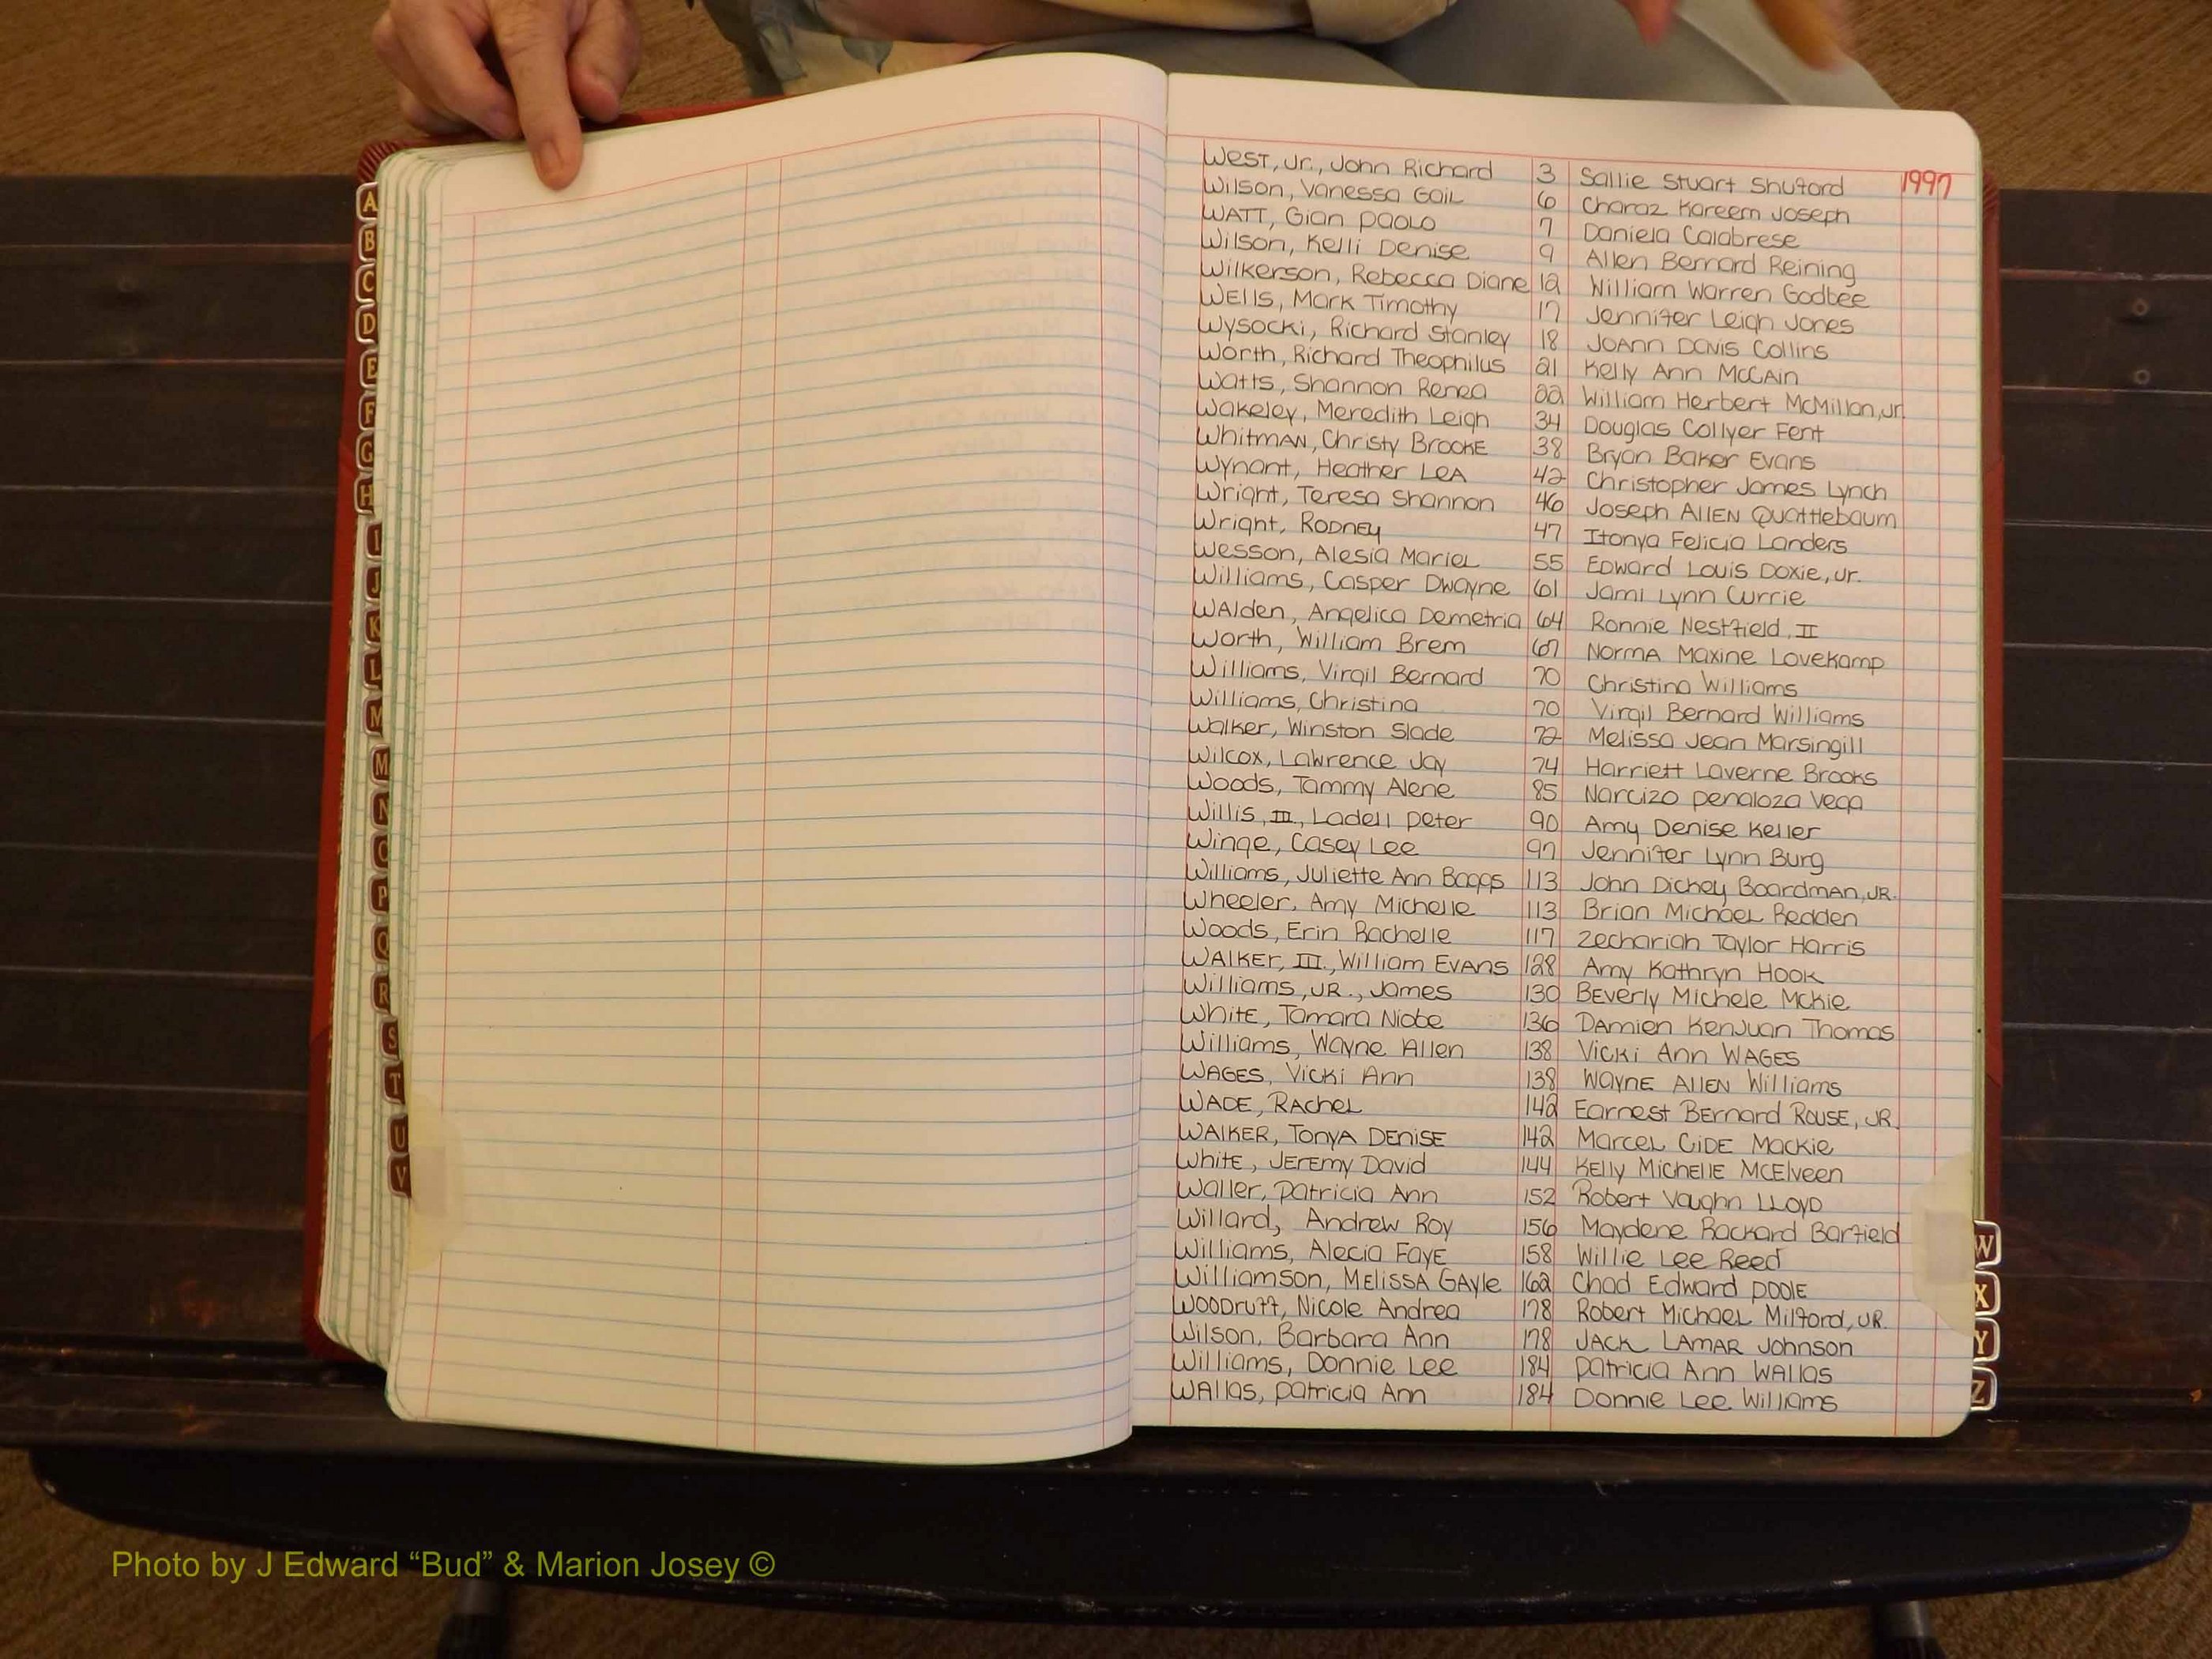 1997
West, Jr., John Richard 3 Sallie Stuart Shuford
Wilson, Vanessa Gail 6 Charaz Kareem Joseph
WATT, Gian PAOLO 7 Daniela Calabrese
Wilson, Kelli Denise 9 Allen Bernard Reining
Wilkerson, Rebecca Diane 12 William Warren Godbee
Wells, Mark Timothy 17 Jennifer Leigh Jones
Wysocki, Richard Stanley 18 JoAnn Davis Collins
Worth, Richard Theophilus 21 Kelly Ann McCAin
Watts, Shannon Renea 22 William Herbert McMillan, Jr.
Wakeley, Meredith Leigh 34 Douglas Collyer Fent
Whitman, Christy Brooke 38 Bryan Baker Evans
Wynant, Heather LeA 42 Christopher James Lynch
Wright, Teresa Shannon 46 Joseph Allen Quattlebaum
Wright, Rodney 47 Itonya Felicia Landers
Wesson, Alesia Mariel 55 Edward Louis Doxie, Jr.
Williams, Casper Dwayne 61 Jami Lynn Currie
WAlden, Angelica Demetria 64 Ronnie Nestfield, II
Worth, William Brem 67 Norma Maxine Lovekamp
Williams, Virgil Bernard 70 Christina Williams
Williams, Christina 70 Virgil Bernard Williams
Walker, Winston Slade 72 Melissa Jean Marsingill
Wilcox, Lawrence Jay 74 Harriett Laverne Brooks
Woods, Tammy Alene 85 Narcizo Penaloza Vega
Willis, III., Ladell Peter 90 Amy Denise Keller
Winge, Casey Lee 97 Jennifer Lynn Burg
Williams, Juliette Ann Boggs 113 John Dickey Boardman, JR.
Wheeler, Amy Michelle 113 Brian Michael Redden
Woods, Erin Rachelle 117 Zechariah Taylor Harris
WALKER, III., William EVANS 128 Amy Kathryn HOOK
Williams, JR., James 130 Beverly Michele McKie
White, Tamara Niobe 136 DAmien KenJuan Thomas
Williams, Wayne Allen 138 Vicki Ann WAGES
WAGES, Vicki Ann 138 WAYNE ALLEN Williams
WADE, RACHEL 142 Earnest BErnard ROUSE, JR.
WALKER, TONYA DENISE 142 MARCEL CiDE MACKie
White, JEREMY David 144 KELLY MichELLE MCElveen
Waller, Patricia Ann 152 Robert Vaughn LLOYD
Willard, Andrew Roy 156 Maydene Rackard Barfield
Williams, Alecia FAYE 158 Willie Lee Reed
Williamson, MELISSA GAYLE 162 Chad Edward POOLE
Woodruff, Nicole Andrea 178 Robert Michael Milford, JR.
Wilson, Barbara Ann 178 JACK LAMAR Johnson
Williams, Donnie Lee 184 Patricia Ann WALLAS
WALLAS, Patricia Ann 184 Donnie Lee Williams
A
B
C
D
E
F
G
H
I
J
K
L
M
M
N
O
P
Q
R
S
T
U
V
W
X
Y
Z
Photo by J Edward “Bud” & Marion Josey ©